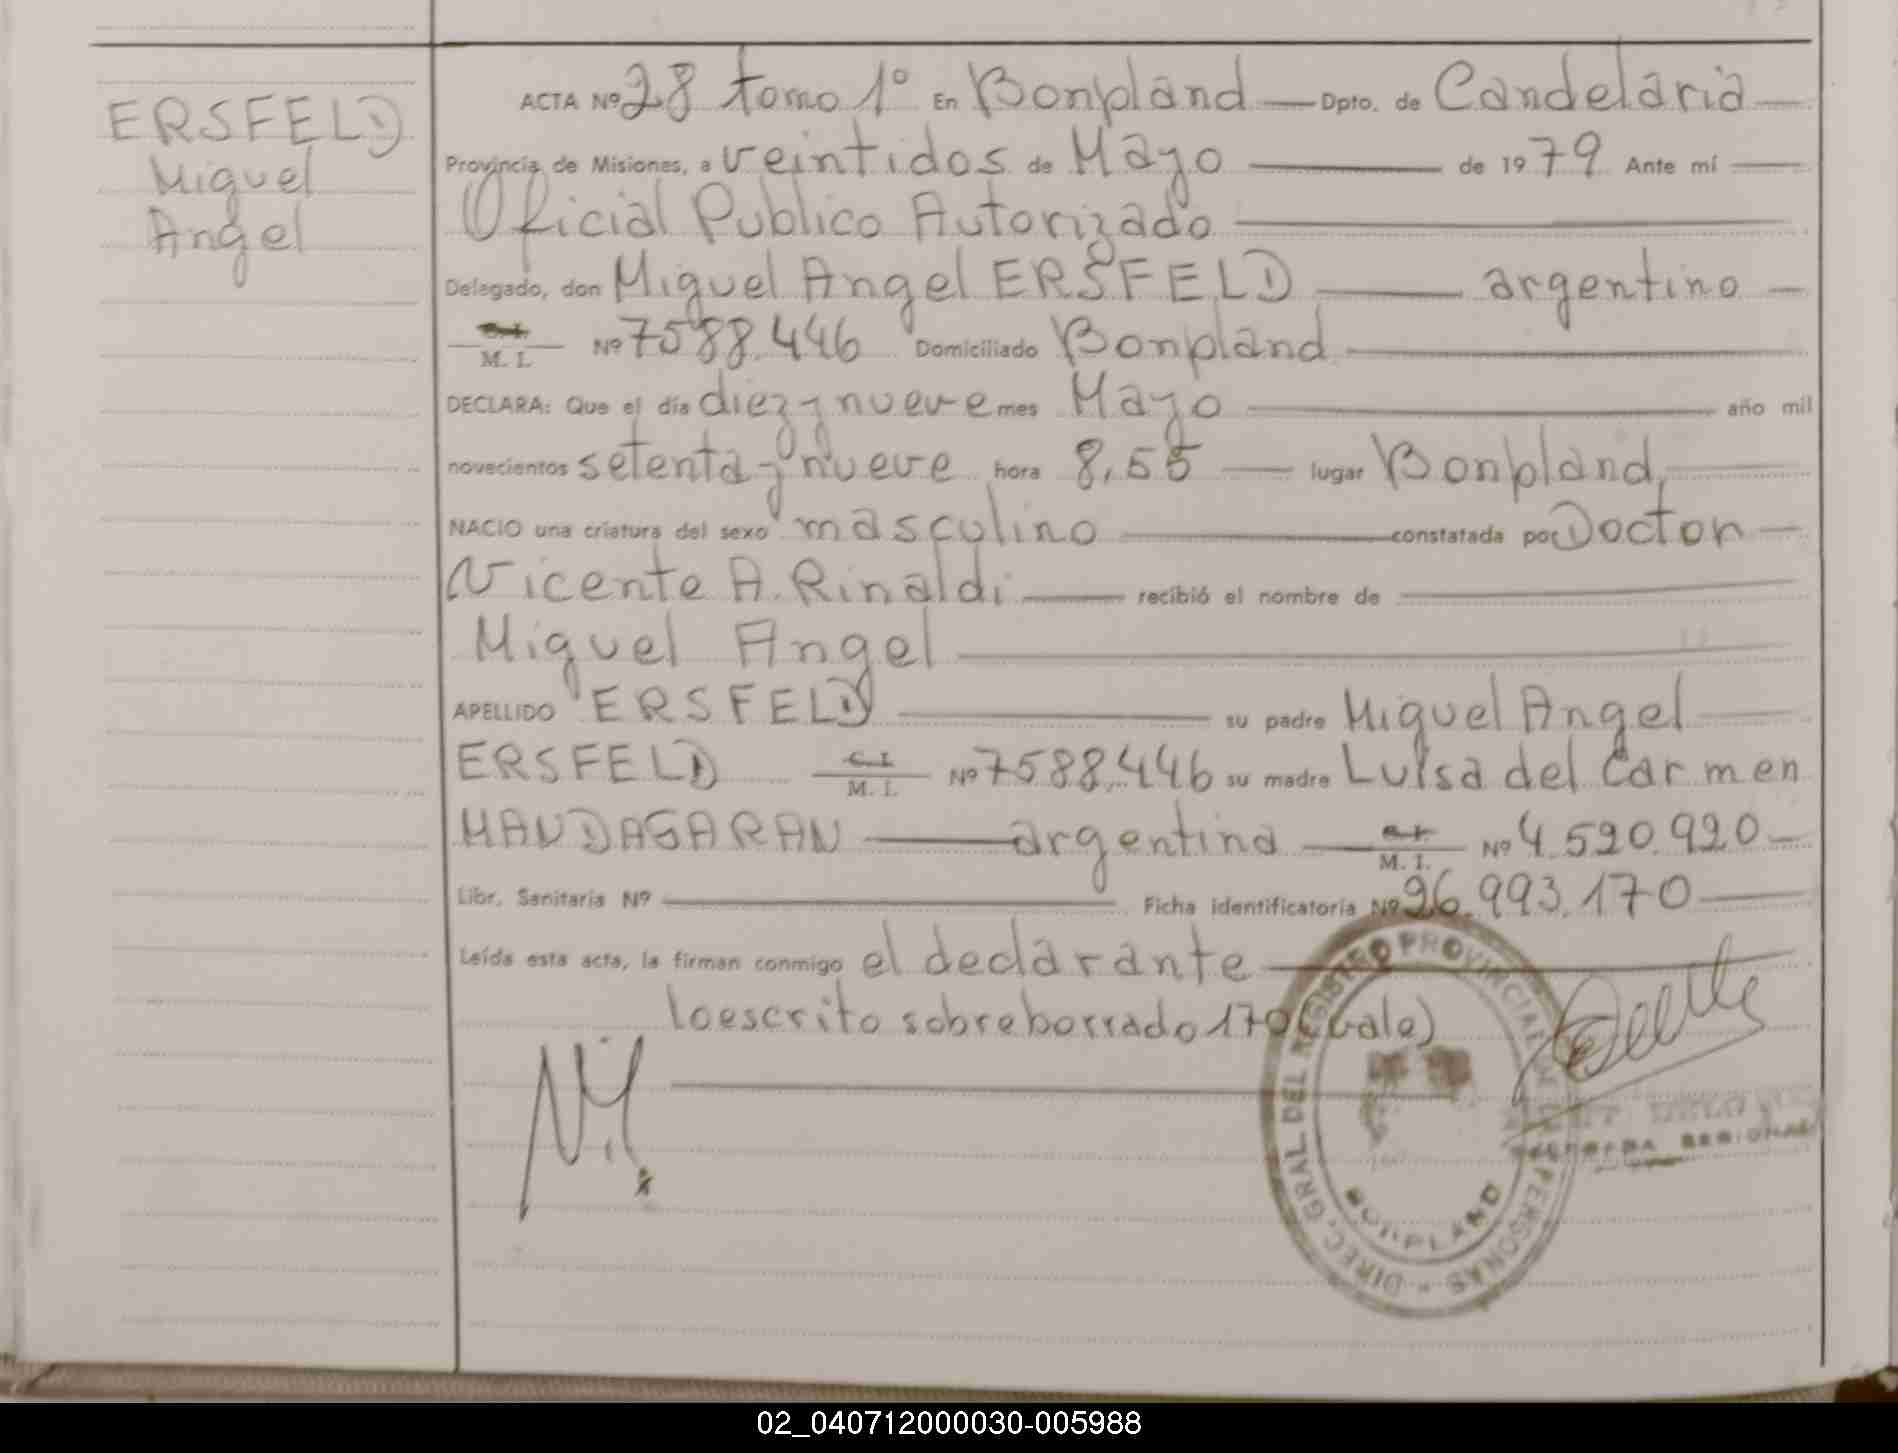 ERSFELD
Miguel
Angel
ACTA Nº 28 tomo 1º En Bonpland Dpto. de Candelaria
Provincia de Misiones, a veintidos de Mayo de 1979 Ante mí
Oficial Publico Autorizado
Delegado, don Miguel Angel ERSFELD argentino
M. I. Nº 7588.446 Domiciliado Bonpland
DECLARA: Que el día diez y nueve mes Mayo año mil
novecientos setenta y nueve hora 8,55 lugar Bonpland,
NACIO una criatura del sexo masculino constatada por Doctor
Vicente A. Rinaldi recibió el nombre de
Miguel Angel
APELLIDO ERSFELD su padre Miguel Angel
ERSFELD C. I. M. I. Nº 7588.446 su madre Luisa del Carmen
MANDAGARAN argentina M. I. Nº 4.520.920
Libr. Sanitaria Nº Ficha identificatoria Nº 26.993.170
Leída esta acta, la firman conmigo el declarante
loescrito sobreborrado 170 (vale)
DIREC. GRAL DEL REGISTRO PROVINCIAL PERSONAS
BONPLAND
REGIONAL
02_040712000030-005988